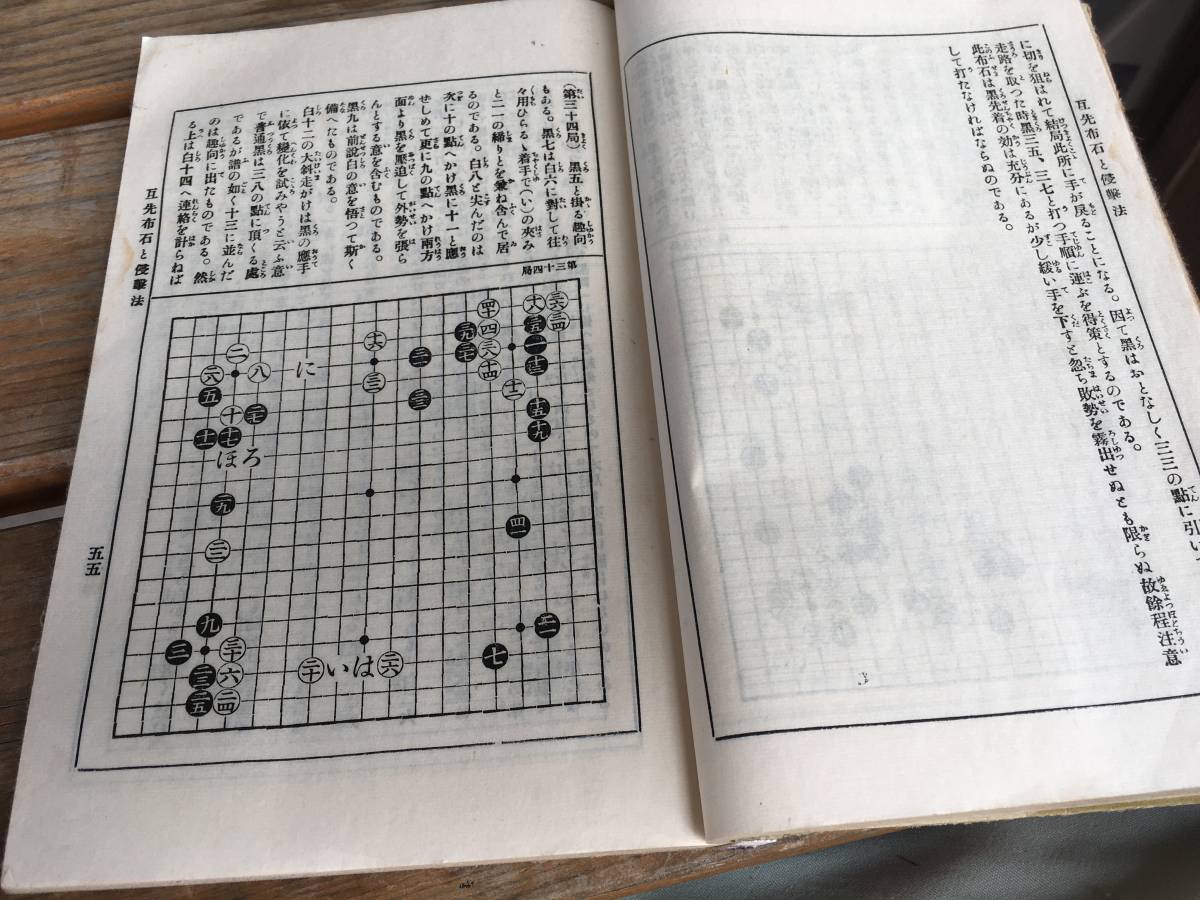 互先布石と侵撃法
に切を狙はれて結局此所に手が戻ることになる。因て黑はおとなしく三三の點に引い
走路を取つた時黑三五、三七と打つ手順に運ぶを得策とするのである。
此布石は黑先着の効は充分にあるが少し緩い手を下すと忽ち敗勢を露出せぬとも限らぬ故餘程注意
して打たなければならぬのである。
(第三十四局) 黑五と掛る趣向
もある。黑七は白六に對して往
々用ひらるゝ着手で(い)の夾み
と二一の締りとを兼ね含んで居
るのである。白八と尖んだのは
次に十の點へかけ黑に十一と應
せしめて更に九の點へかけ兩方
面より黑を壓迫して外勢を張ら
んとする意を含むものである。
黑九は前説白の意を悟つて斯く
備へたものである。
白十二の大斜走がけは黑の應手
に依て變化を試みやうと云ふ意
で普通黑は三八の點に頂くる處
であるが譜の如く十三に並んだ
のは趣向に出たものである。然
る上は白十四へ連絡を計らねば
第三十四局
十八 三六
四十 三五 三四
十六 三九 四 一
二 三一 三七 三八 十三
六 八 に 三 三三 十四
五 十二
十 二七 十五
十一 十七 十九
ほ ろ
二九
四一
三二
九
三 三十 七 二一
二三 六 二十 い は 二六
二五 二四
互先布石と侵撃法
五五